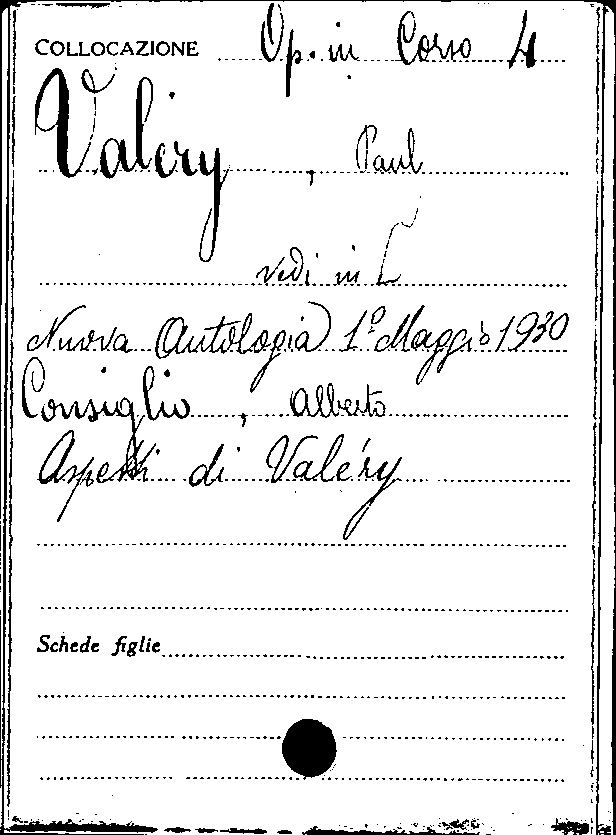 COLLOCAZIONE Op. in Corso 4
Valéry, Paul
vedi in
Nuova Antologia 1º Maggio 1930
Consiglio, Alberto
Aspetti di Valéry
Schede figlie